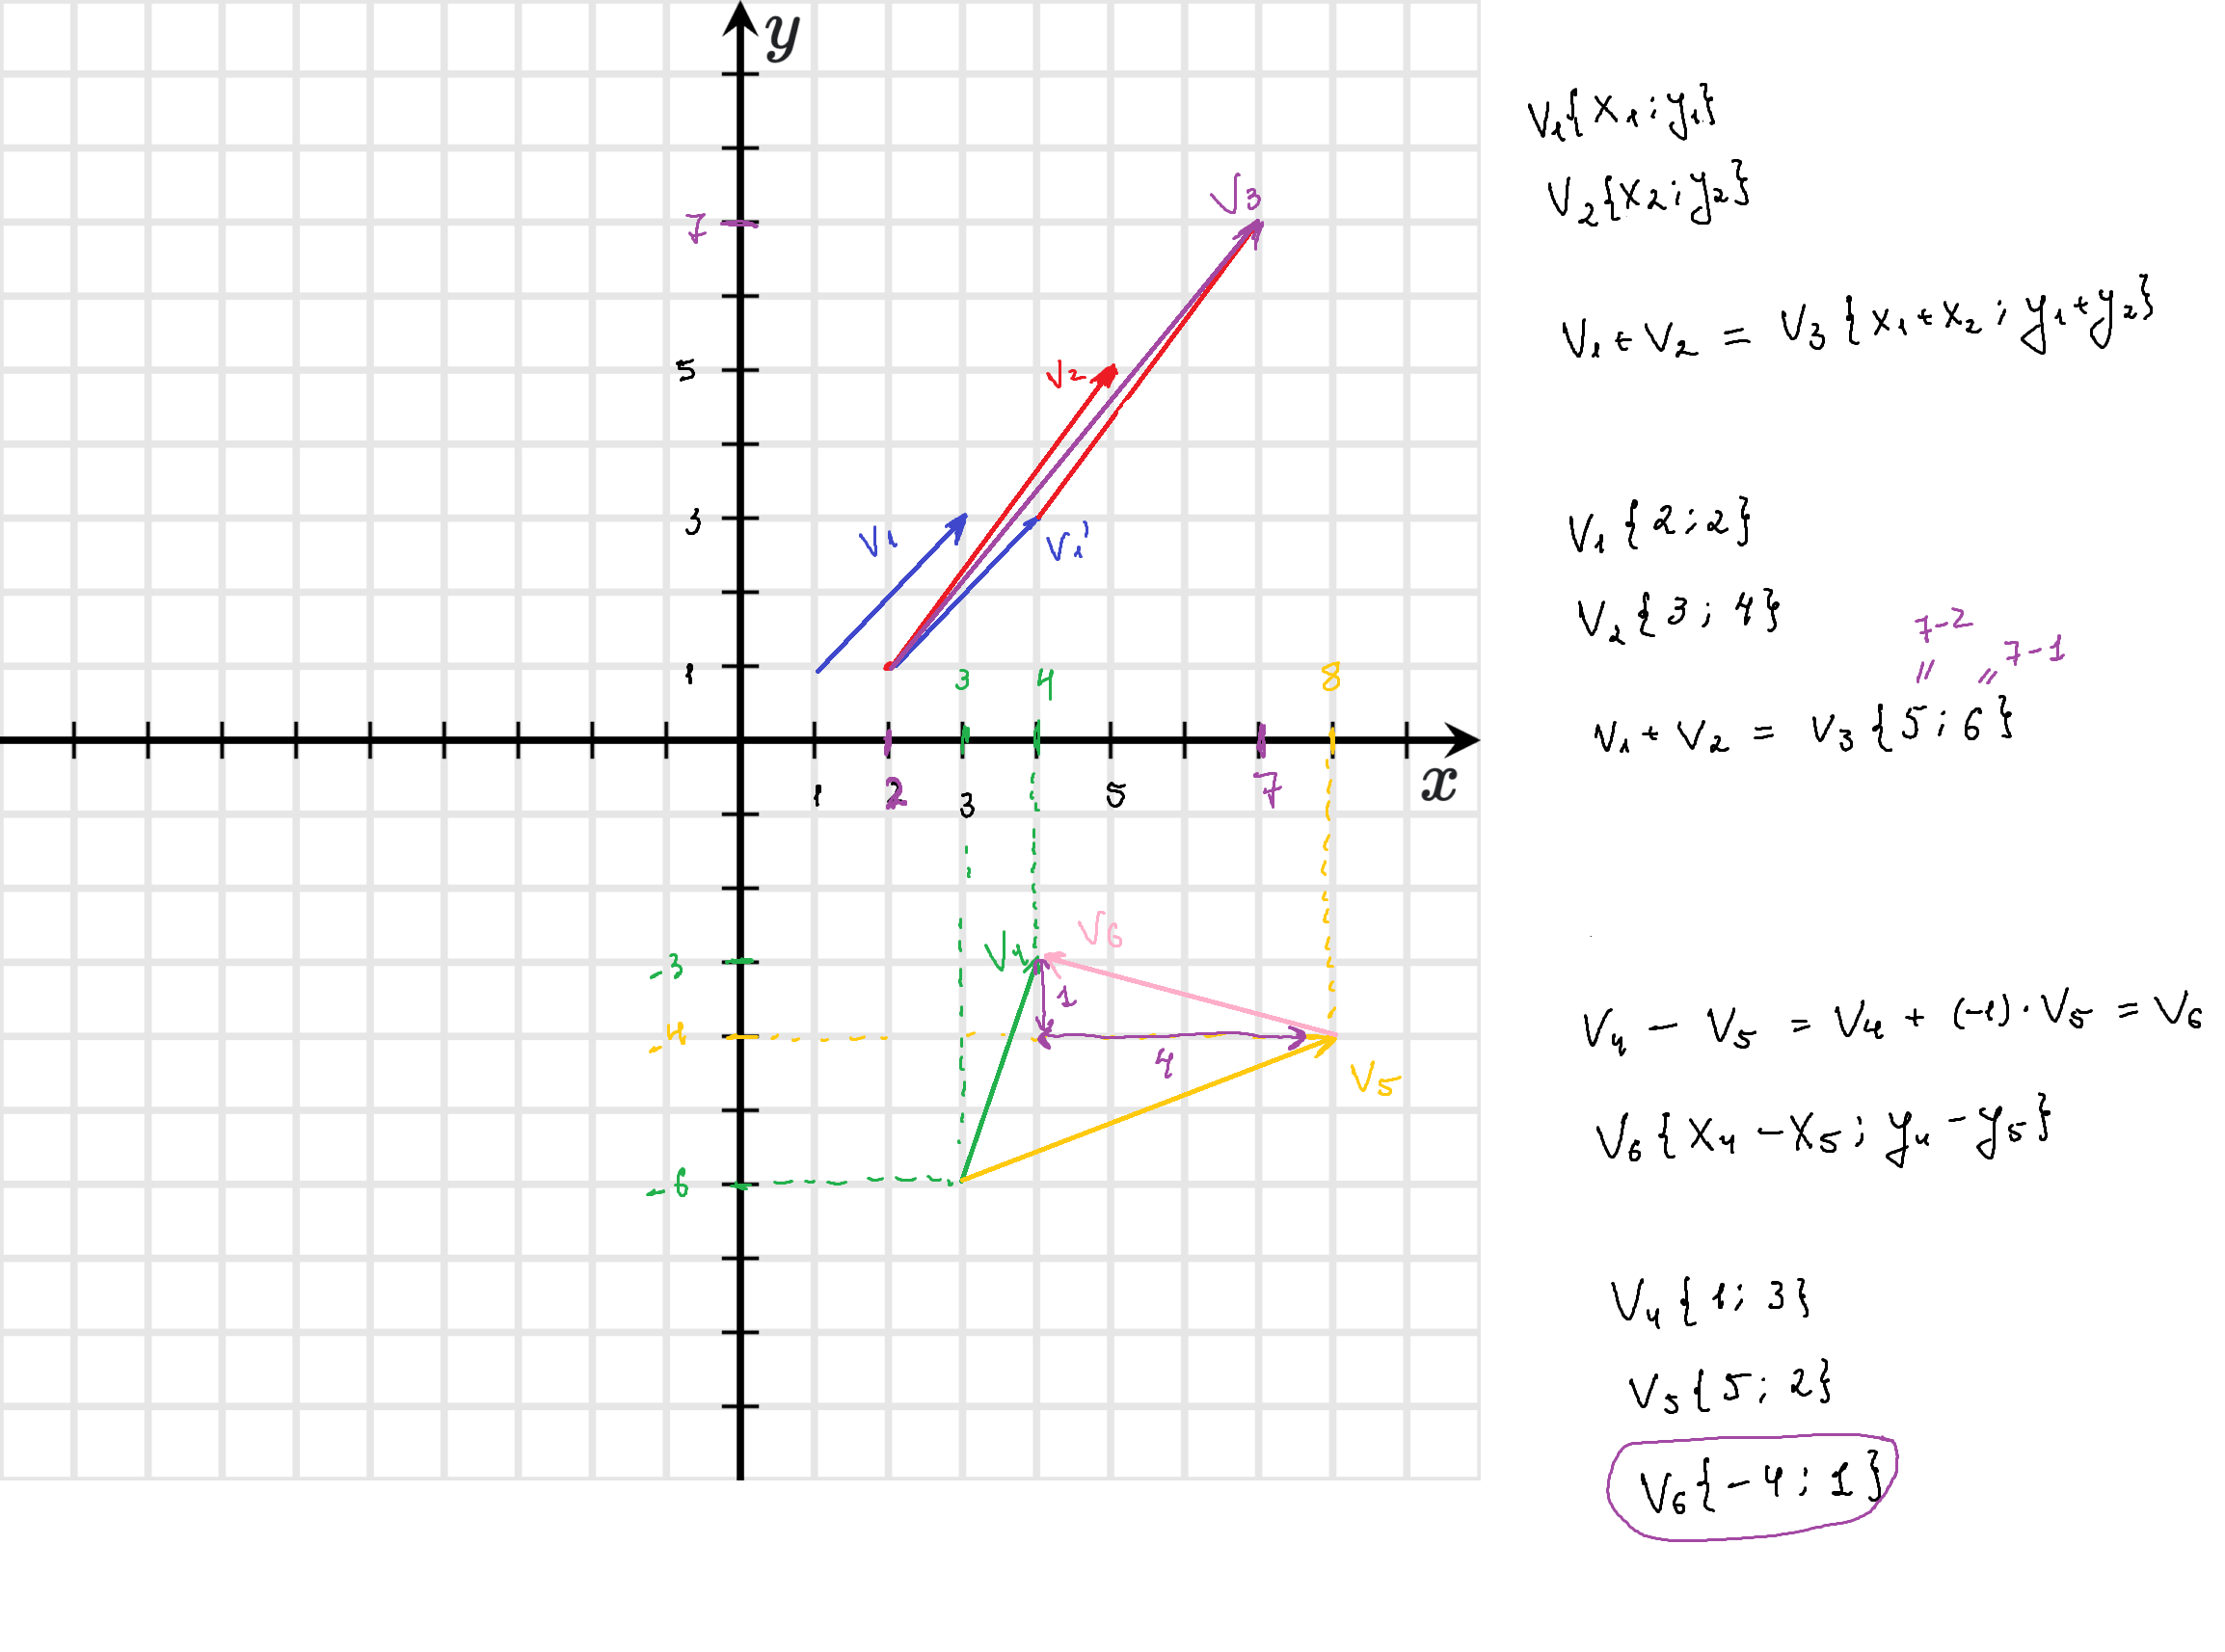 y
V3
7
V2
5
V1
V1'
3
1
3
4
8
x
1
2
3
5
7
V6
V4
-3
1
-4
4
V5
-6
V1{x1;y1}
V2{x2;y2}
V1+V2 = V3{x1+x2;y1+y2}
V1{2;2}
V2{3;4}
7-2
7-1
"
"
V1+V2 = V3{5;6}
V4 - V5 = V4 + (-1)·V5 = V6
V6{x4-x5;y4-y5}
V4{1;3}
V5{5;2}
V6{-4;1}